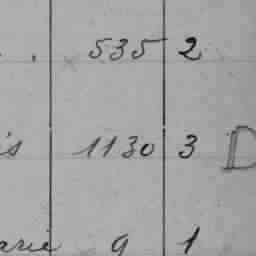 . 535 2
is 1130 3 D
arie 9 1